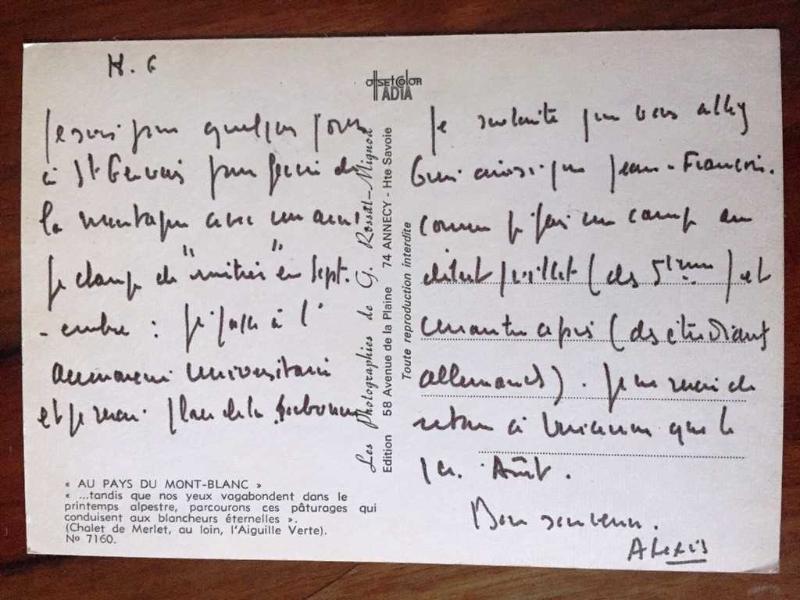 H. 6
Je suis pour quelques jours
à St Gervais pour faire de
la montagne avec un ami.
Je change de "métier" en Sept.
-embre : je passe à l'
aumônerie Universitaire
et je serai place de la Sorbonne
« AU PAYS DU MONT-BLANC »
« ...tandis que nos yeux vagabondent dans le
printemps alpestre, parcourons ces pâturages qui
conduisent aux blancheurs éternelles ».
(Chalet de Merlet, au loin, l'Aiguille Verte).
No 7160.
OFFSETCOLOR
IADIA
Les Photographies de G. Rossat-Mignod
Edition 58 Avenue de la Plaine 74 ANNECY - Hte Savoie
Toute reproduction interdite
Je souhaite que vous alliez
bien ainsi que Jean-François.
comme je fais un camp au
début juillet (des 5ième) et
un autre après (des étudiants
allemands). Je ne serai de
retour à que le
1er. Août.
Bon souvenir.
Alexis